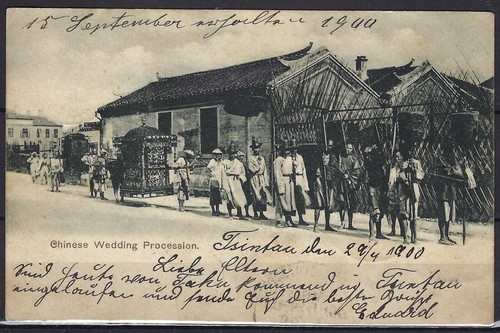 15 September erhalten 1900
Chinese Wedding Procession.
Tsintau den 29/4 1900
Liebe Eltern
Sind heute von Taku kommend in Tsintau
eingelaufen und sende Euch die beste Grüße
Eduard